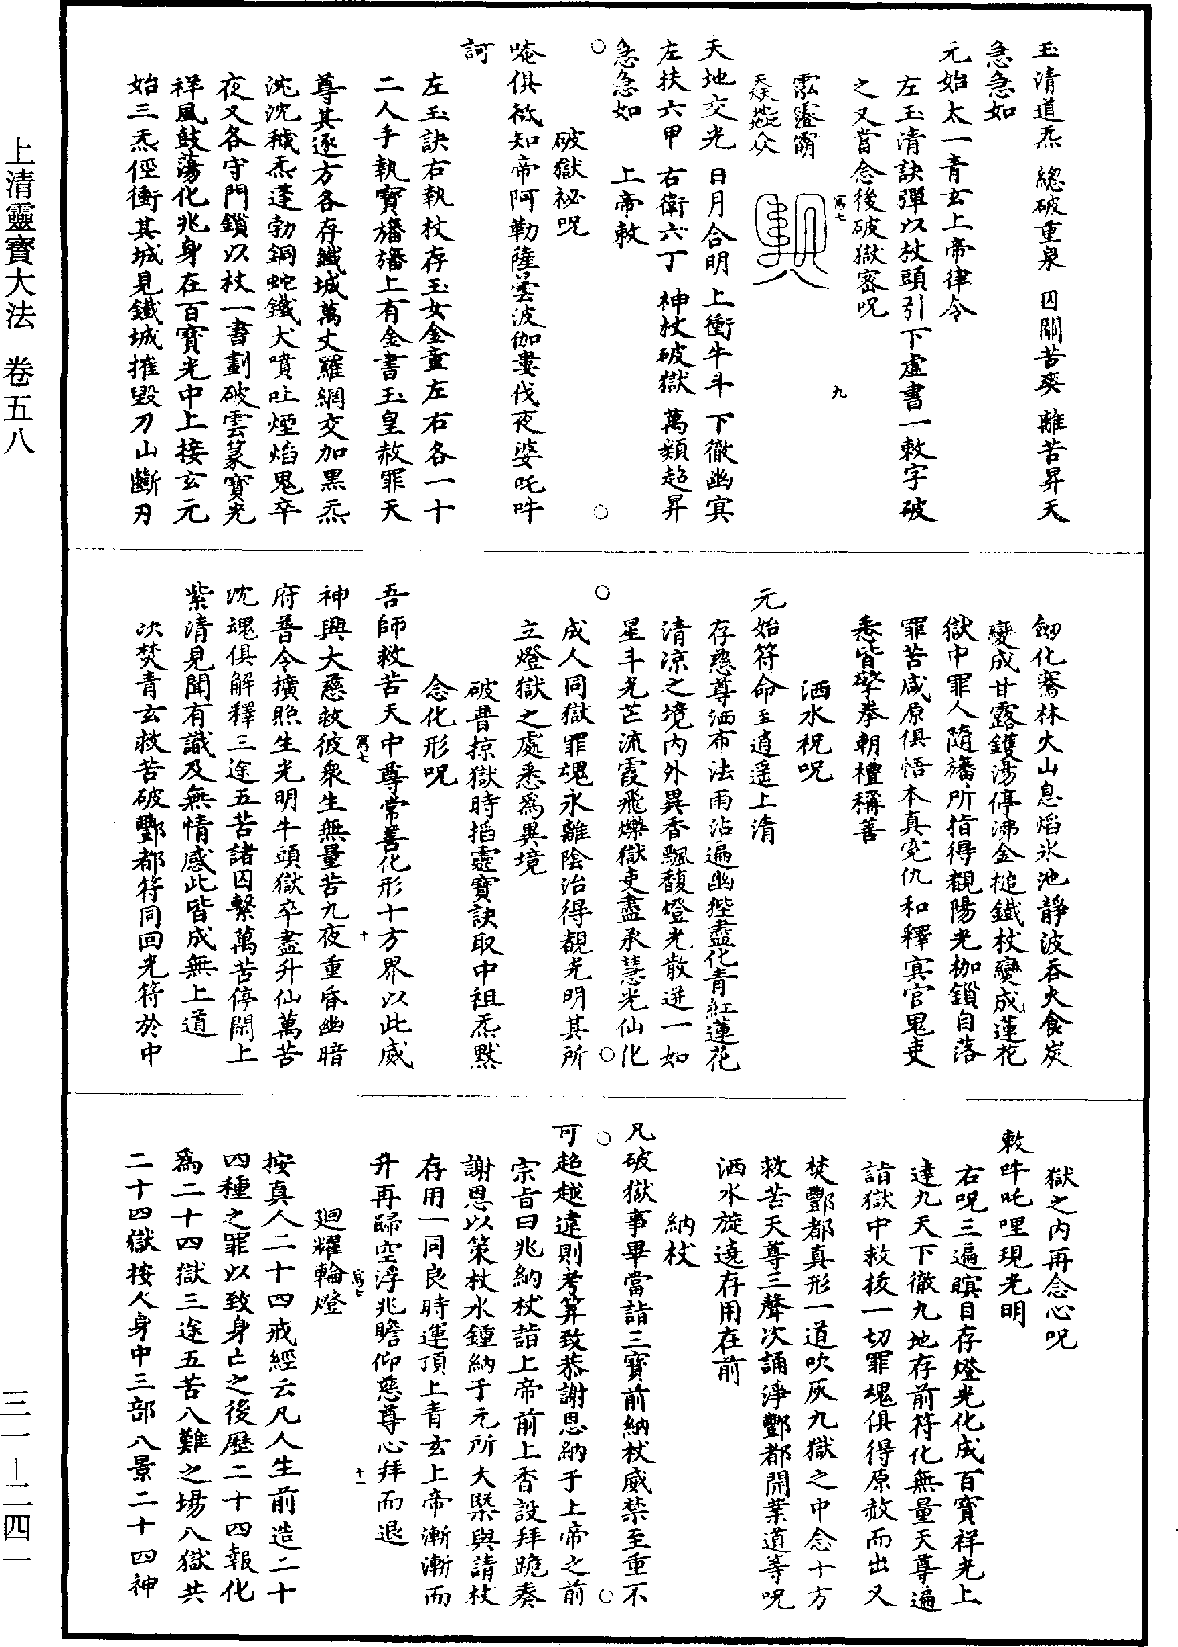 上清靈寶大法　卷五八
三一－二四一
玉清道炁　總破重泉　囚關苦爽　離苦昇天
急急如
元始太一青玄上帝律令
左玉清訣彈以杖頭引下虛書一敕字破
之又當念後破獄密咒
寫七
九
天地交光　日月合明　上衝牛斗　下徹幽冥
左扶六甲　右衛六丁　神杖破獄　萬類超昇
急急如　上帝敕
破獄祕咒
唵俱祇知帝阿勒薩曇波伽婁伐夜娑吒吽
訶
左玉訣右執杖存玉女金童左右各一十
二人手執寶旛旛上有金書玉皇赦罪天
尊其逐方各存鐵城萬丈羅網交加黑炁
沈沈穢炁蓬勃銅蛇鐵犬噴吐煙焰鬼卒
夜叉各守門鎖以杖一書劃破雲篆寶光
祥風鼓蕩化兆身在百寶光中上接玄元
始三炁徑衝其城見鐵城摧毀刀山斷刃
劒化騫林火山息焰氷池靜波吞火食炭
變成甘露鑊湯停沸金槌鐵杖變成蓮花
獄中罪人隨旛所指得覩陽光枷鎖自落
罪苦咸原俱悟本真冤仇和釋冥官鬼吏
悉皆擎拳朝禮稱善
洒水祝咒
元始符命至逍遥上清
存慈尊洒布法雨沾遍幽陛盡化青紅蓮花
清涼之境内外異香飄馥燈光散迸一如
星斗光芒流霞飛爍獄吏盡承慧光仙化
成人同獄罪魂永離陰治得覩光明其所
立燈獄之處悉為異境
破普掠獄時搯靈寶訣取中祖炁默
念化形咒
吾師救苦天中尊常善化形十方界以此威
寫七
十
神興大慈救彼衆生無量苦九夜重昏幽暗
府普令擴照生光明牛頭獄卒盡升仙萬苦
沈魂俱解釋三途五苦諸囚繫萬苦停閉上
紫清見聞有識及無情感此皆成無上道
次焚青玄救苦破酆都符同回光符於中
獄之内再念心咒
敕吽吒哩現光明
右咒三遍瞑目存燈光化成百寶祥光上
達九天下徹九地存前符化無量天尊遍
詣獄中救拔一切罪魂俱得原赦而出又
焚酆都真形一道吹灰九獄之中念十方
救苦天尊三聲次誦淨酆都開業道等咒
洒水旋遶存用在前
納杖
凡破獄事畢當詣三寶前納杖威禁至重不
可超越違則考算致恭謝恩納于上帝之前
宗旨曰兆納杖詣上帝前上香設拜跪奏
謝恩以策杖水鍾納于元所大槩與請杖
存用一同良時運頂上青玄上帝漸漸而
升再歸空浮兆瞻仰慈尊心拜而退
寫七
十一
廻耀輪燈
按真人二十四戒經云凡人生前造二十
四種之罪以致身亡之後歷二十四報化
為二十四獄三途五苦八難之場八獄共
二十四獄按人身中三部八景二十四神